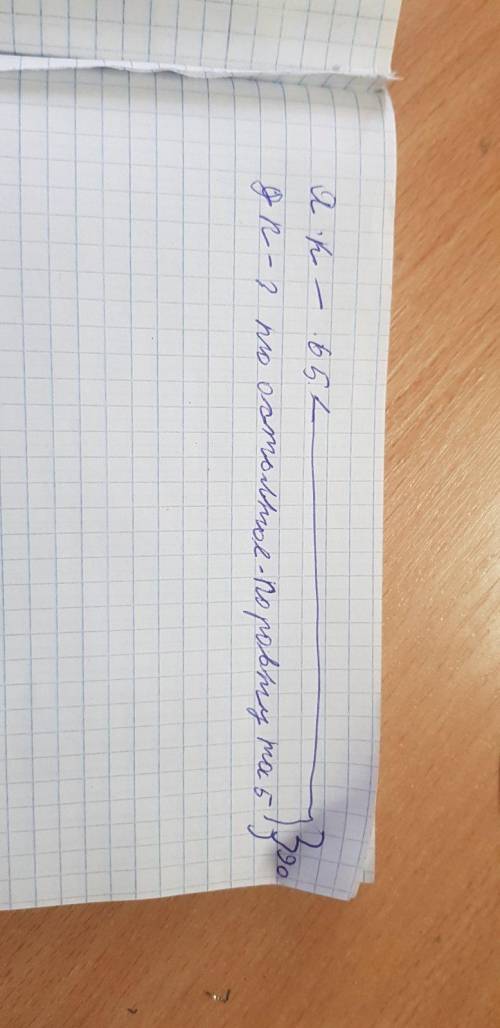 Я.п – 65
Д п – ? по остальное. поровну на 5 } 90